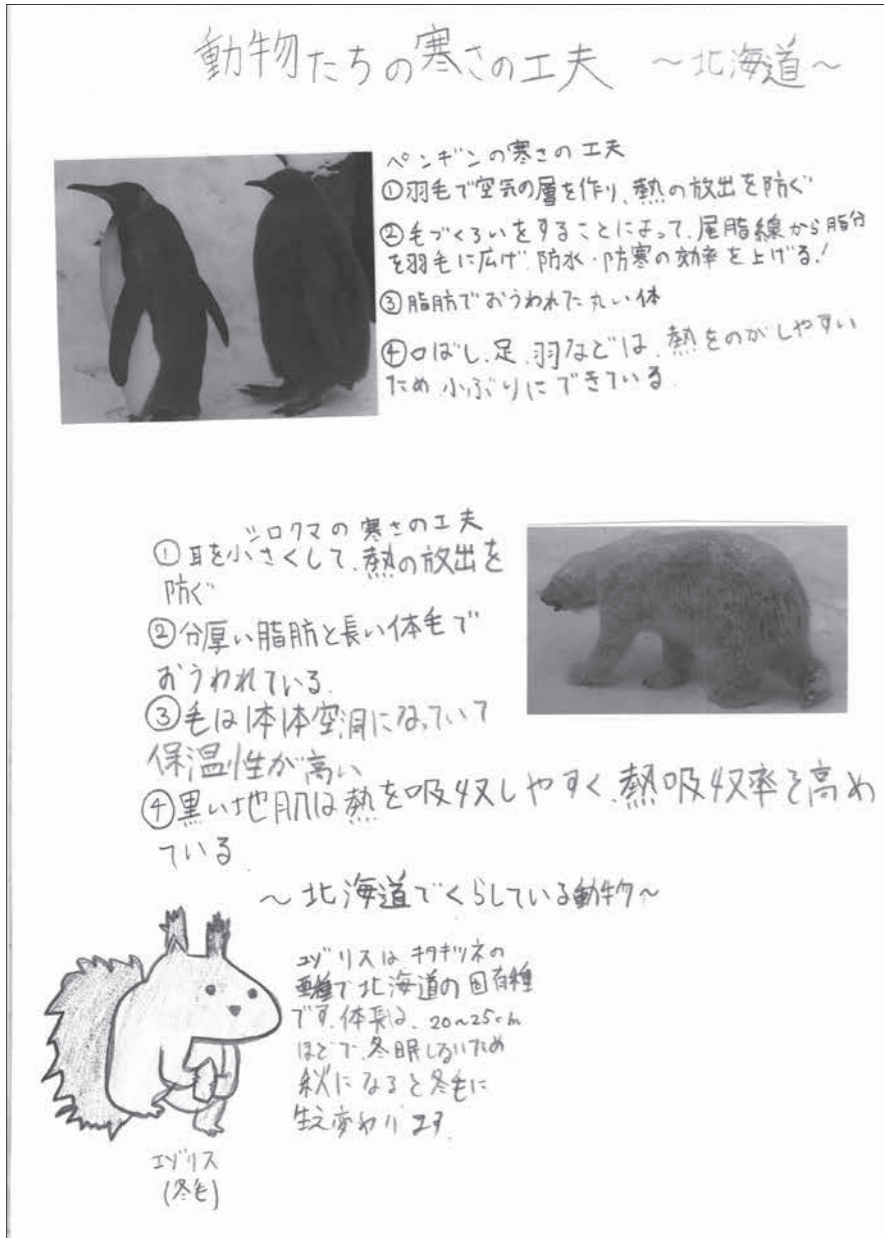 動物たちの寒さの工夫 ～北海道～
ペンギンの寒さの工夫
①羽毛で空気の層を作り、熱の放出を防ぐ
②毛づくろいをすることによって、尾脂線から脂分
を羽毛に広げ 防水・防寒の効率を上げる!
③脂肪でおうわれた丸い体
④口ばし、足、羽などは、熱をのがしやすい
ため 小ぶりにできている
シロクマの寒さの工夫
①耳を小さくして、熱の放出を
防ぐ
②分厚い脂肪と長い体毛で
おうわれている
③毛は体体空洞になっていて
保温性が高い
④黒い地肌は熱を吸収しやすく、熱吸収率を高め
ている
～北海道でくらしている動物～
エゾリスはキタキツネの
亜種で北海道の固有種
です。体長は、20～25cm
ほどで、冬眠しないため
秋になると冬毛に
生え変わります
エゾリス
(冬毛)